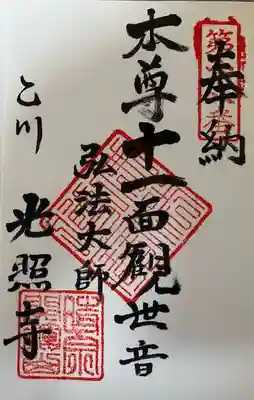 奉納
本尊十一面観世音
弘法大師
乙川
光照寺